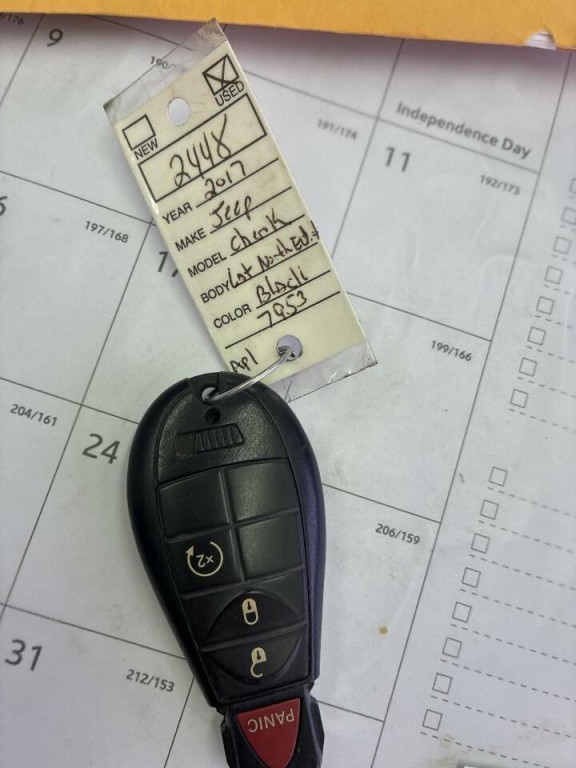 9
190/
USED
NEW
2448
YEAR 2017
MAKE Jeep
MODEL
BODY
COLOR Black
7953
Independence Day
191/174
11
192/173
197/168
199/166
204/161
24
206/159
31
212/153
x2
PANIC